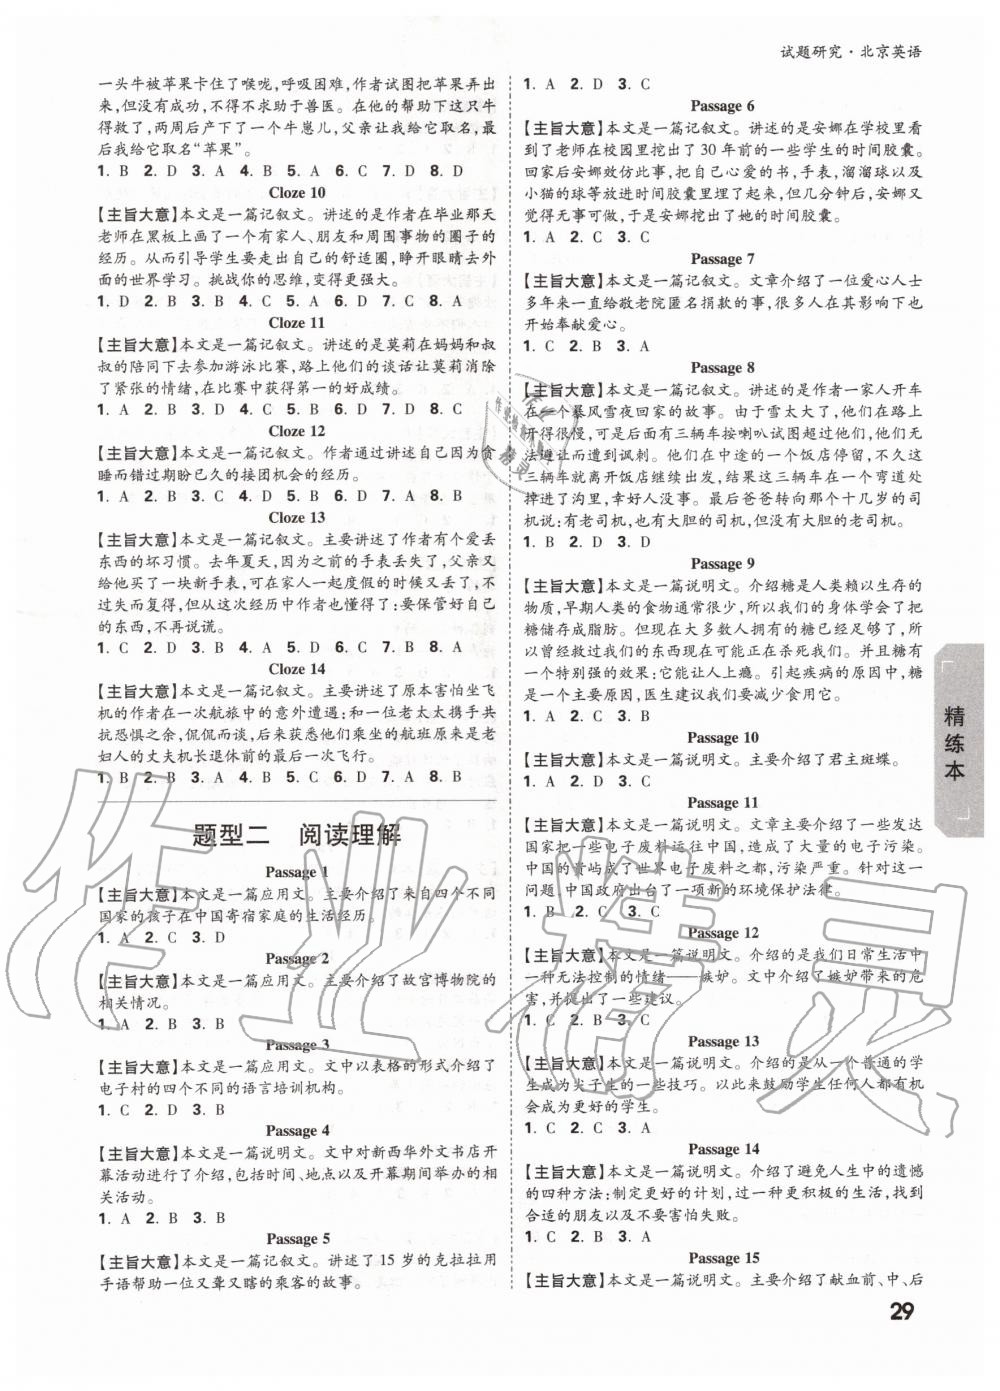 试题研究·北京英语
一头牛被苹果卡住了喉咙,呼吸困难,作者试图把苹果弄出
来,但没有成功,不得不求助于兽医。在他的帮助下这只牛
得救了,两周后产下了一个牛崽儿,父亲让我给它取名,最
后我给它取名“苹果”。
1. B 2. D 3. A 4. B 5. A 6. C 7. D 8. D
Cloze 10
【主旨大意】本文是一篇记叙文。讲述的是作者在毕业那天
老师在黑板上画了一个有家人、朋友和周围事物的圈子的
经历。从而引导学生要走出自己的舒适圈,睁开眼睛去外
面的世界学习。挑战你的思维,变得更强大。
1. D 2. B 3. B 4. C 5. A 6. D 7. C 8. A
Cloze 11
【主旨大意】本文是一篇记叙文。讲述的是莫莉在妈妈和叔
叔的陪同下去参加游泳比赛,路上他们的谈话让莫莉消除
了紧张的情绪,在比赛中获得第一的好成绩。
1. A 2. B 3. D 4. C 5. A 6. B 7. D 8. C
Cloze 12
【主旨大意】本文是一篇记叙文。作者通过讲述自己因为贪
睡而错过期盼已久的接团机会的经历。
1. A 2. D 3. B 4. C 5. D 6. D 7. A 8. B
Cloze 13
【主旨大意】本文是一篇记叙文。主要讲述了作者有个爱丢
东西的坏习惯。去年夏天,因为之前的手表丢失了,父亲又
给他买了一块新手表,可在家人一起度假的时候又丢了,不
过失而复得,但从这次经历中作者也懂得了:要保管好自己
的东西,不再说谎。
1. C 2. D 3. B 4. A 5. D 6. C 7. A 8. B
Cloze 14
【主旨大意】本文是一篇记叙文。主要讲述了原本害怕坐飞
机的作者在一次航旅中的意外遭遇:和一位老太太携手共
抗恐惧之余,侃侃而谈,后来获悉他们乘坐的航班原来是老
妇人的丈夫机长退休前的最后一次飞行。
1. B 2. B 3. A 4. B 5. C 6. D 7. A 8. B
题型二 阅读理解
Passage 1
【主旨大意】本文是一篇应用文。主要介绍了来自四个不同
国家的孩子在中国寄宿家庭的生活经历。
1. A 2. C 3. D
Passage 2
【主旨大意】本文是一篇应用文。主要介绍了故宫博物院的
相关情况。
1. A 2. B 3. B
Passage 3
【主旨大意】本文是一篇应用文。文中以表格的形式介绍了
电子村的四个不同的语言培训机构。
1. C 2. D 3. B
Passage 4
【主旨大意】本文是一篇说明文。文中对新西华外文书店开
幕活动进行了介绍,包括时间、地点以及开幕期间举办的相
关活动。
1. A 2. B 3. B
Passage 5
【主旨大意】本文是一篇记叙文。讲述了 15 岁的克拉拉用
手语帮助一位又聋又瞎的乘客的故事。
1. A 2. D 3. C
Passage 6
【主旨大意】本文是一篇记叙文。讲述的是安娜在学校里看
到了老师在校园里挖出了 30 年前的一些学生的时间胶囊。
回家后安娜效仿此事,把自己心爱的书,手表,溜溜球以及
小猫的球等放进时间胶囊里埋了起来,但几分钟后,安娜又
觉得无事可做,于是安娜挖出了她的时间胶囊。
1. A 2. C 3. C
Passage 7
【主旨大意】本文是一篇记叙文。文章介绍了一位爱心人士
多年来一直给敬老院匿名捐款的事,很多人在其影响下也
开始奉献爱心。
1. C 2. B 3. A
Passage 8
【主旨大意】本文是一篇记叙文。讲述的是作者一家人开车
在一个暴风雪夜回家的故事。由于雪太大了,他们在路上
开得很慢,可是后面有三辆车按喇叭试图超过他们,他们无
法避让而意外受到讽刺。他们在途中的一个饭店停留,不久这
三辆车就离开饭店继续出发,结果这三辆车在一个弯道处
掉进了沟里,幸好人没事。最后爸爸转向那个十几岁的司
机说:有老司机,也有大胆的司机,但没有大胆的老司机。
1. B 2. D 3. D
Passage 9
【主旨大意】本文是一篇说明文。介绍糖是人类赖以生存的
物质,早期人类的食物通常很少,所以我们的身体学会了把
糖储存成脂肪。但现在大多数人拥有的糖已经足够了,所
以曾经救过我们的东西现在可能正在杀死我们。并且糖有
一个特别强的效果:它能让人上瘾。引起疾病的原因中,糖
是一个主要原因,医生建议我们要减少食用它。
1. A 2. C 3. B
Passage 10
【主旨大意】本文是一篇说明文。主要介绍了君主斑蝶。
1. A 2. D 3. C
Passage 11
【主旨大意】本文是一篇说明文。文章主要介绍了一些发达
国家把一些电子废料运往中国,造成了大量的电子污染。
中国的贵屿成了世界电子废料之都,污染严重。针对这一
问题,中国政府出台了一项新的环境保护法律。
1. B 2. C 3. C
Passage 12
【主旨大意】本文是一篇说明文。介绍的是我们日常生活中
一种无法控制的情绪——嫉妒。文中介绍了嫉妒带来的危
害,并提出了一些建议。
1. C 2. B 3. C
Passage 13
【主旨大意】本文是一篇说明文。介绍的是从一个普通的学
生成为尖子生的一些技巧。以此来鼓励学生任何人都有机
会成为更好的学生。
1. C 2. C 3. A
Passage 14
【主旨大意】本文是一篇说明文。介绍了避免人生中的遗憾
的四种方法:制定更好的计划,过一种更积极的生活,找到
合适的朋友以及不要害怕失败。
1. C 2. B 3. A
Passage 15
【主旨大意】本文是一篇说明文。主要介绍了献血前、中、后
精练本
29
作业精灵